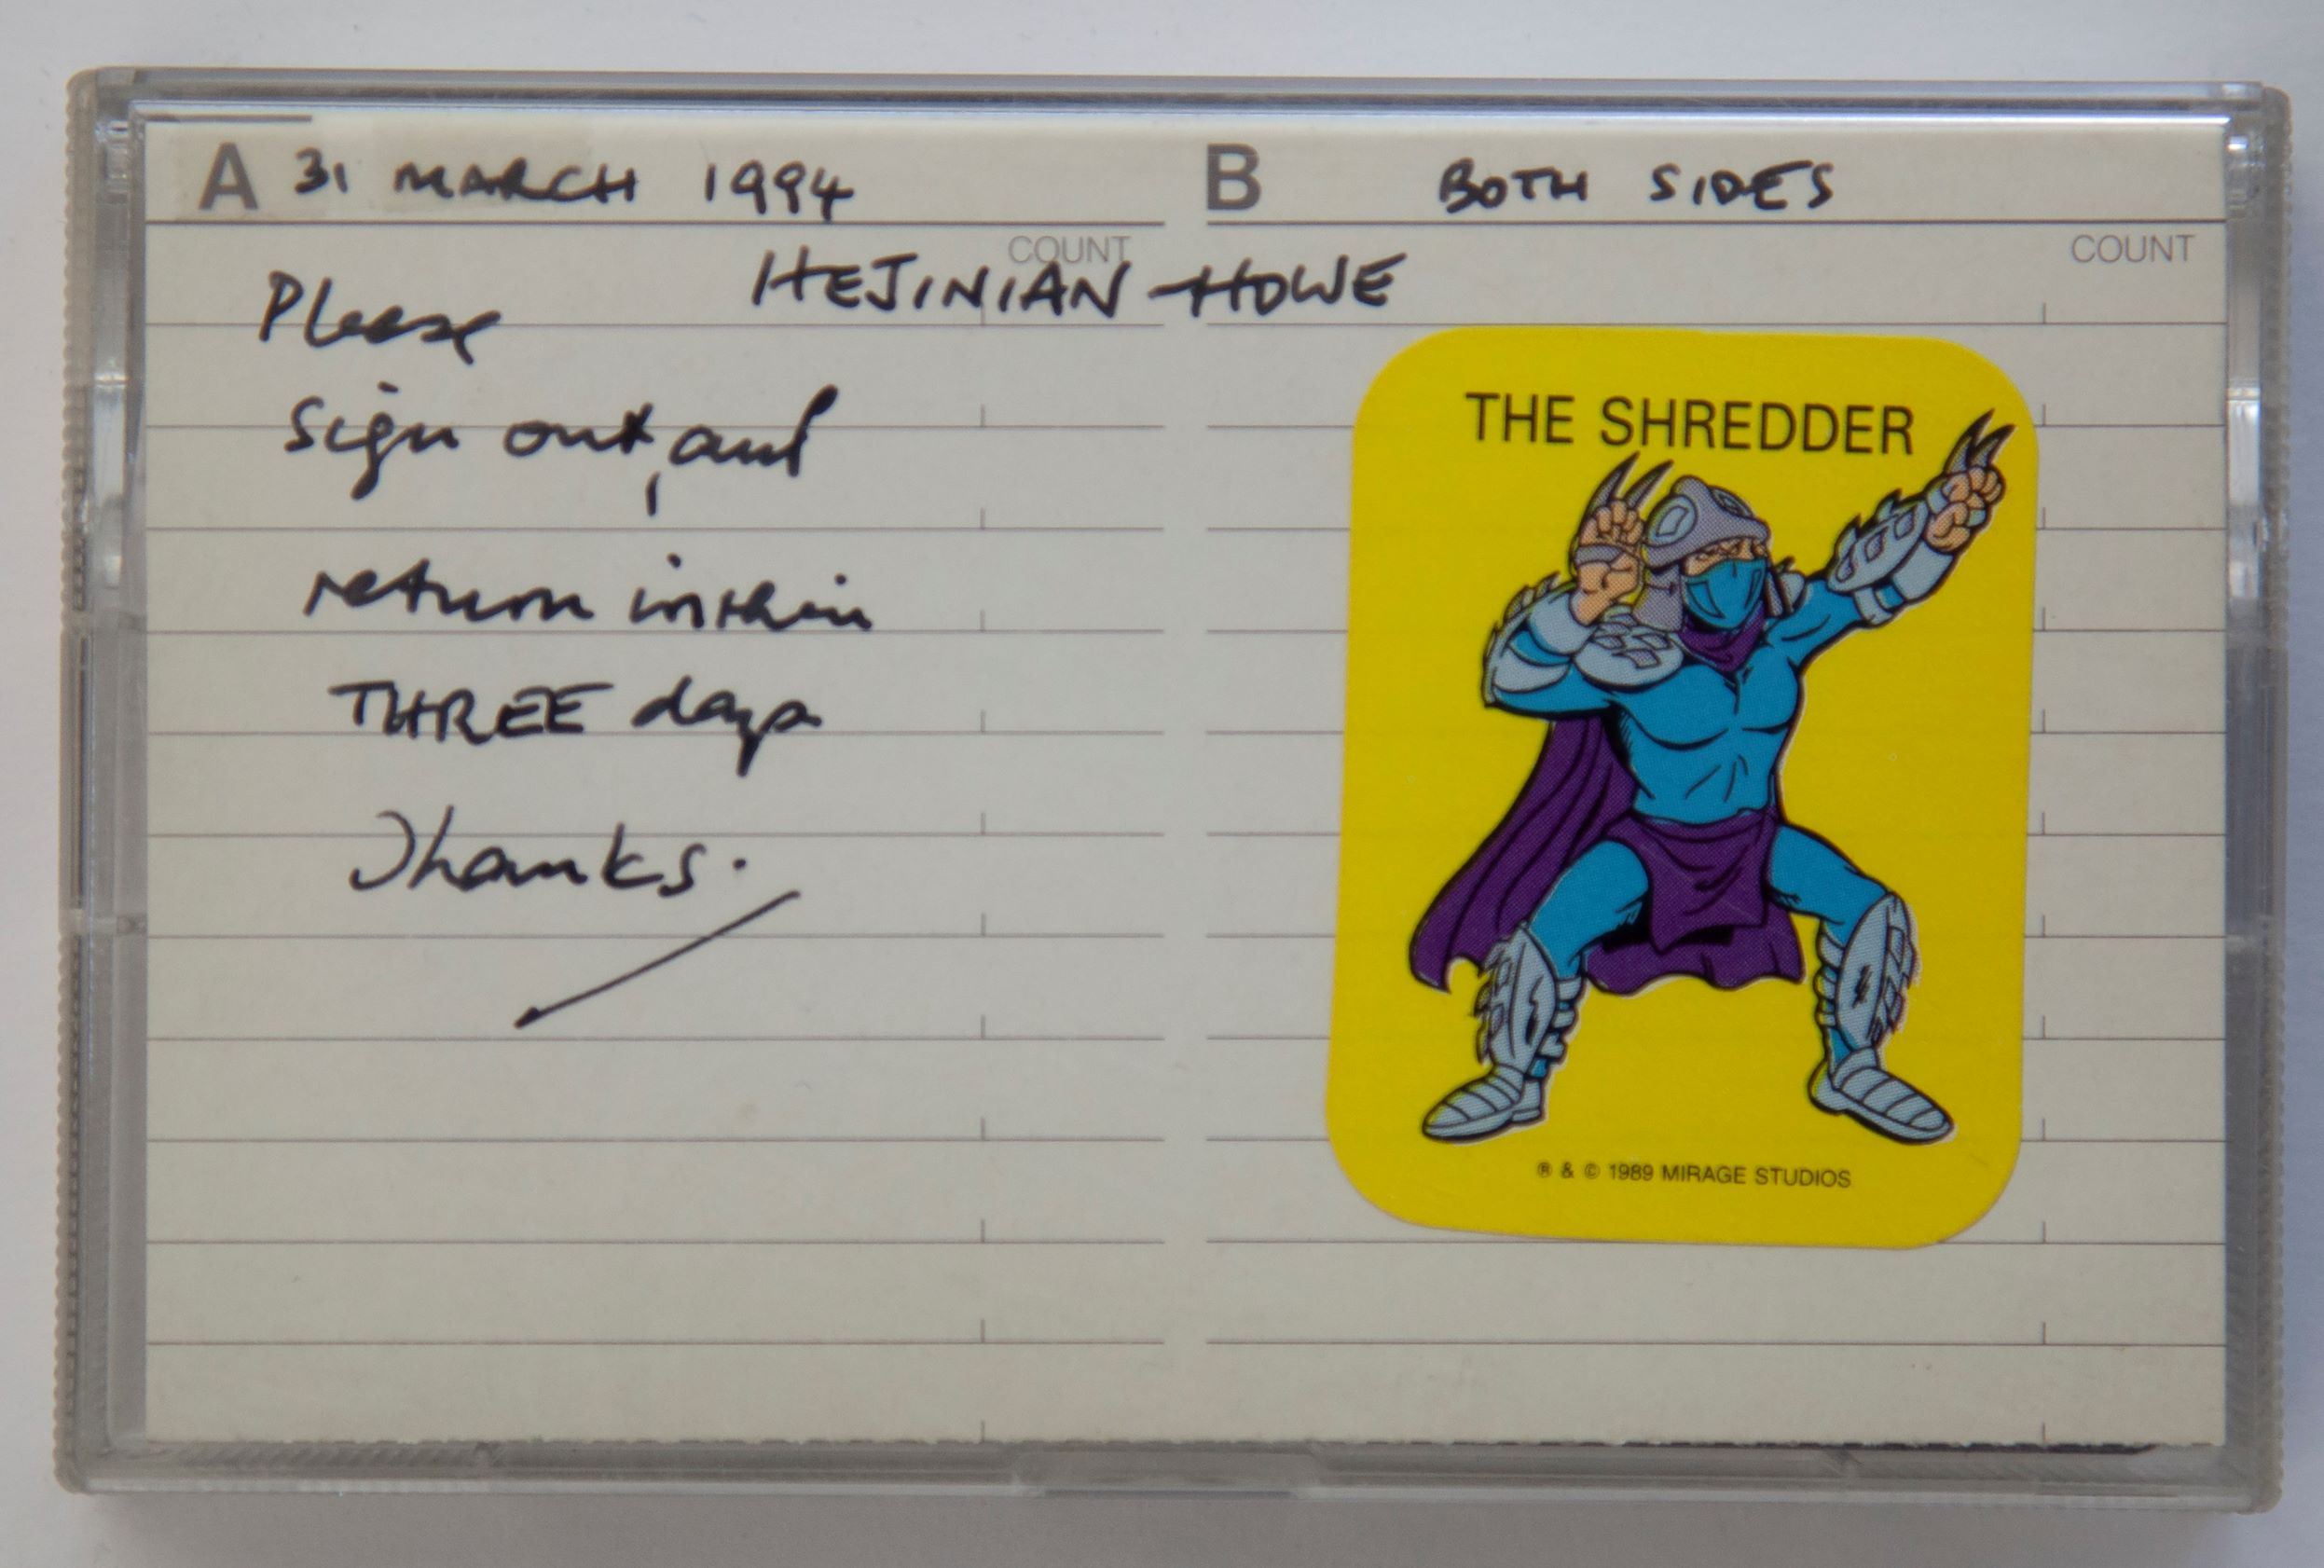 A 31 MARCH 1994
B BOTH SIDES
COUNT
COUNT
HEJINIAN-HOWE
Please
sign out, and
return within
THREE days
Thanks.
THE SHREDDER
® & © 1989 MIRAGE STUDIOS